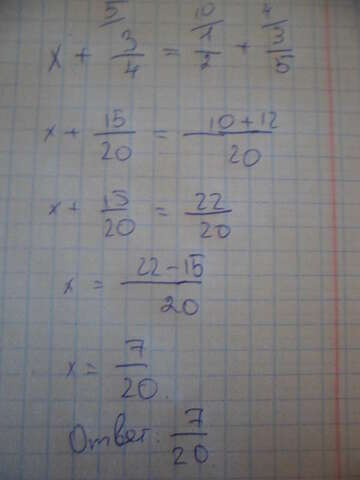 5 10 4
x + 3/4 = 1/2 + 3/5
x + 15/20 = 10+12/20
x + 15/20 = 22/20
x = 22-15/20
x = 7/20
Ответ: 7/20